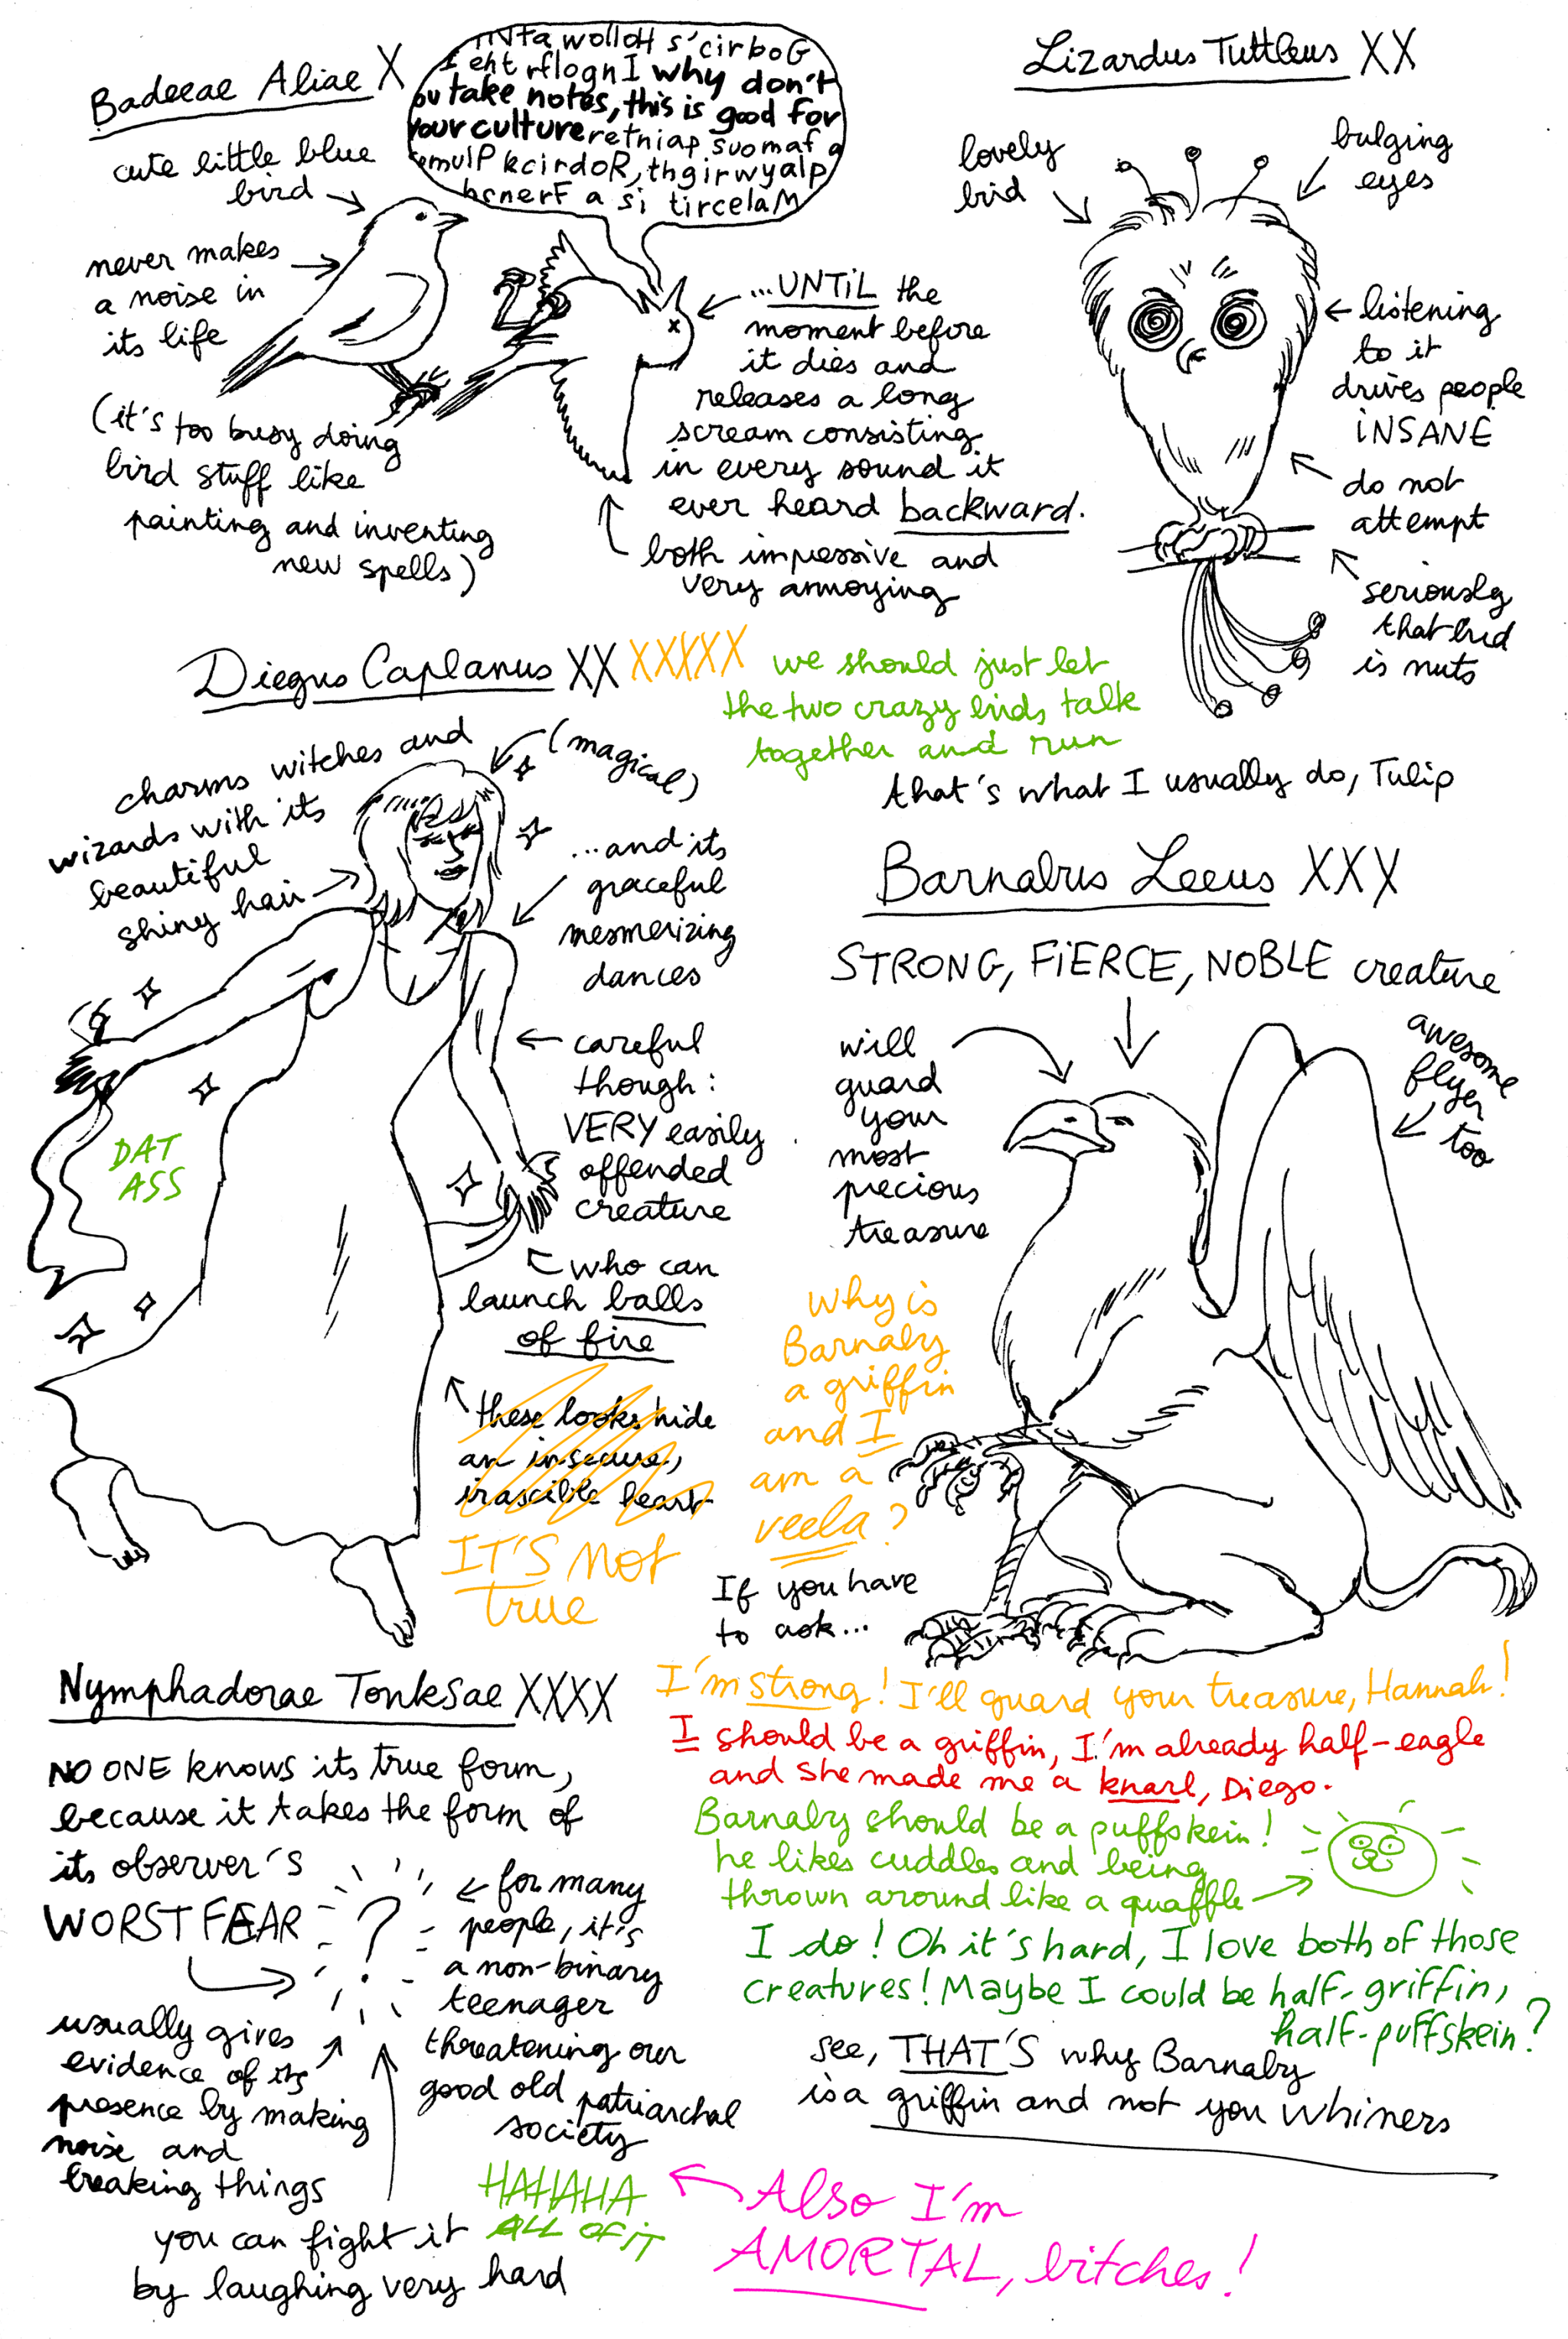 Badeeae Aliae X
cute little blue
bird
never makes
a noise in
its life
(it's too busy doing
bird stuff like
painting and inventing
new spells)
aftN wolloH s'cirboG
I eht rflognI why don't
ou take notes, this is good for
your culture retniap suomaf a
emulP kcirdoR, thgirwyalp
hcnerF a si tircelaM
...UNTiL the
moment before
it dies and
releases a long
scream consisting
in every sound it
ever heard backward.
both impressive and
very annoying
Lizardus Tuttleus XX
lovely
bird
bulging
eyes
listening
to it
drives people
iNSANE
do not
attempt
seriously
that bird
is nuts
Diegus Caplanus XX XXXXX
we should just let
the two crazy birds talk
together and run
that's what I usually do, Tulip
charms witches and
wizards with its
beautiful
shiny hair
(magical)
...and its
graceful
mesmerizing
dances
careful
though:
VERY easily
offended
creature
who can
launch balls
of fire
DAT
ASS
these looks hide
an insecure,
irascible heart
IT'S NOT
true
Barnabus Leeus XXX
STRONG, FiERCE, NOBLE creature
will
guard
your
most
precious
treasure
awesome
flyer
too
Why is
Barnaby
a griffin
and I
am a
veela?
If you have
to ask...
I'm strong! I'll guard your treasure, Hannah!
I should be a griffin, I'm already half-eagle
and she made me a knarl, Diego.
Barnaby should be a puffskein!
he likes cuddles and being
thrown around like a quaffle
I do! Oh it's hard, I love both of those
creatures! Maybe I could be half-griffin,
half-puffskein?
see, THAT'S why Barnaby
is a griffin and not you whiners
Nymphadorae Tonksae XXXX
NO ONE knows its true form,
because it takes the form of
its observer's
WORST FEAR
?
for many
people, it's
a non-binary
teenager
threatening our
good old patriarchal
society
usually gives
evidence of its
presence by making
noise and
breaking things
you can fight it
by laughing very hard
HAHAHA
ALL OF iT
Also I'm
AMORTAL, bitches!